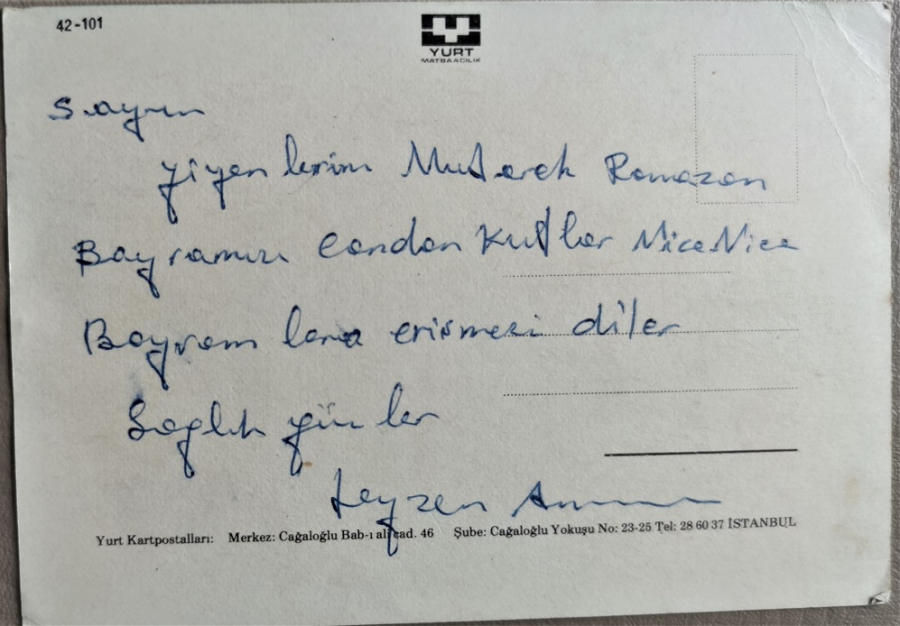 42-101
YURT
MATBAACILIK
Sayın
yiyenlerim Mubarek Ramazan
Bayramızı candan Kutlar Nice Nice
Bayramlara erişmezi diler
Sağlık günler
Teyzen
Yurt Kartpostalları: Merkez: Cağaloğlu Bab-ı ali cad. 46 Şube: Cağaloğlu Yokuşu No: 23-25 Tel: 28 60 37 İSTANBUL